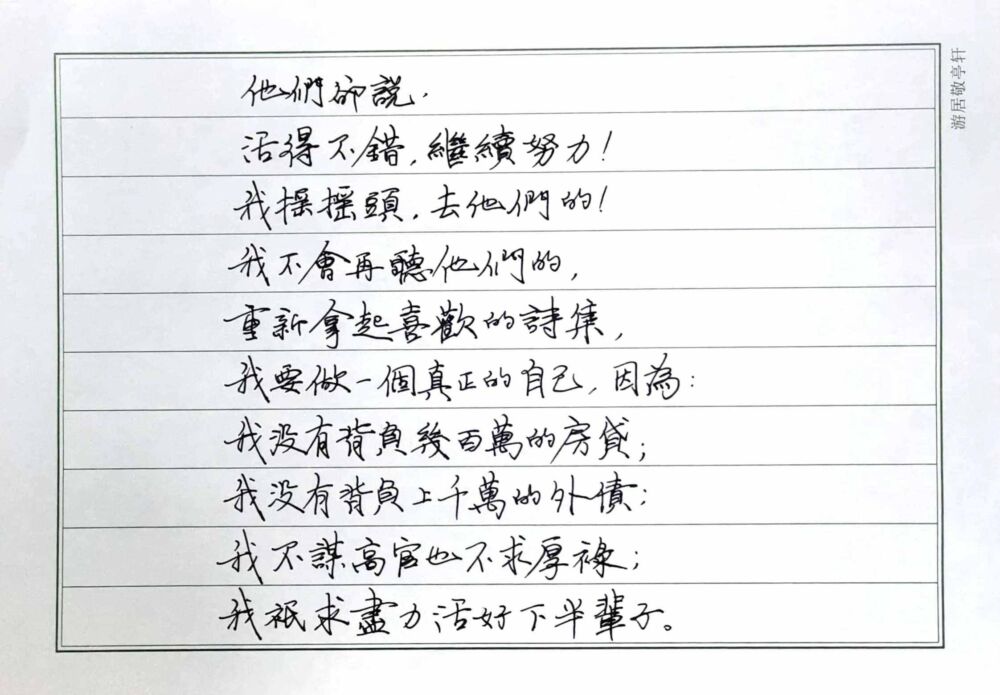 他們卻說.
活得不錯,繼續努力!
我摇摇頭,去他們的!
我不會再聽他們的,
重新拿起喜歡的詩集,
我要做一個真正的自己,因為:
我没有背負幾百萬的房貸;
我没有背負上千萬的外債;
我不謀高官也不求厚祿;
我祇求盡力活好下半輩子。
游居敬亭轩